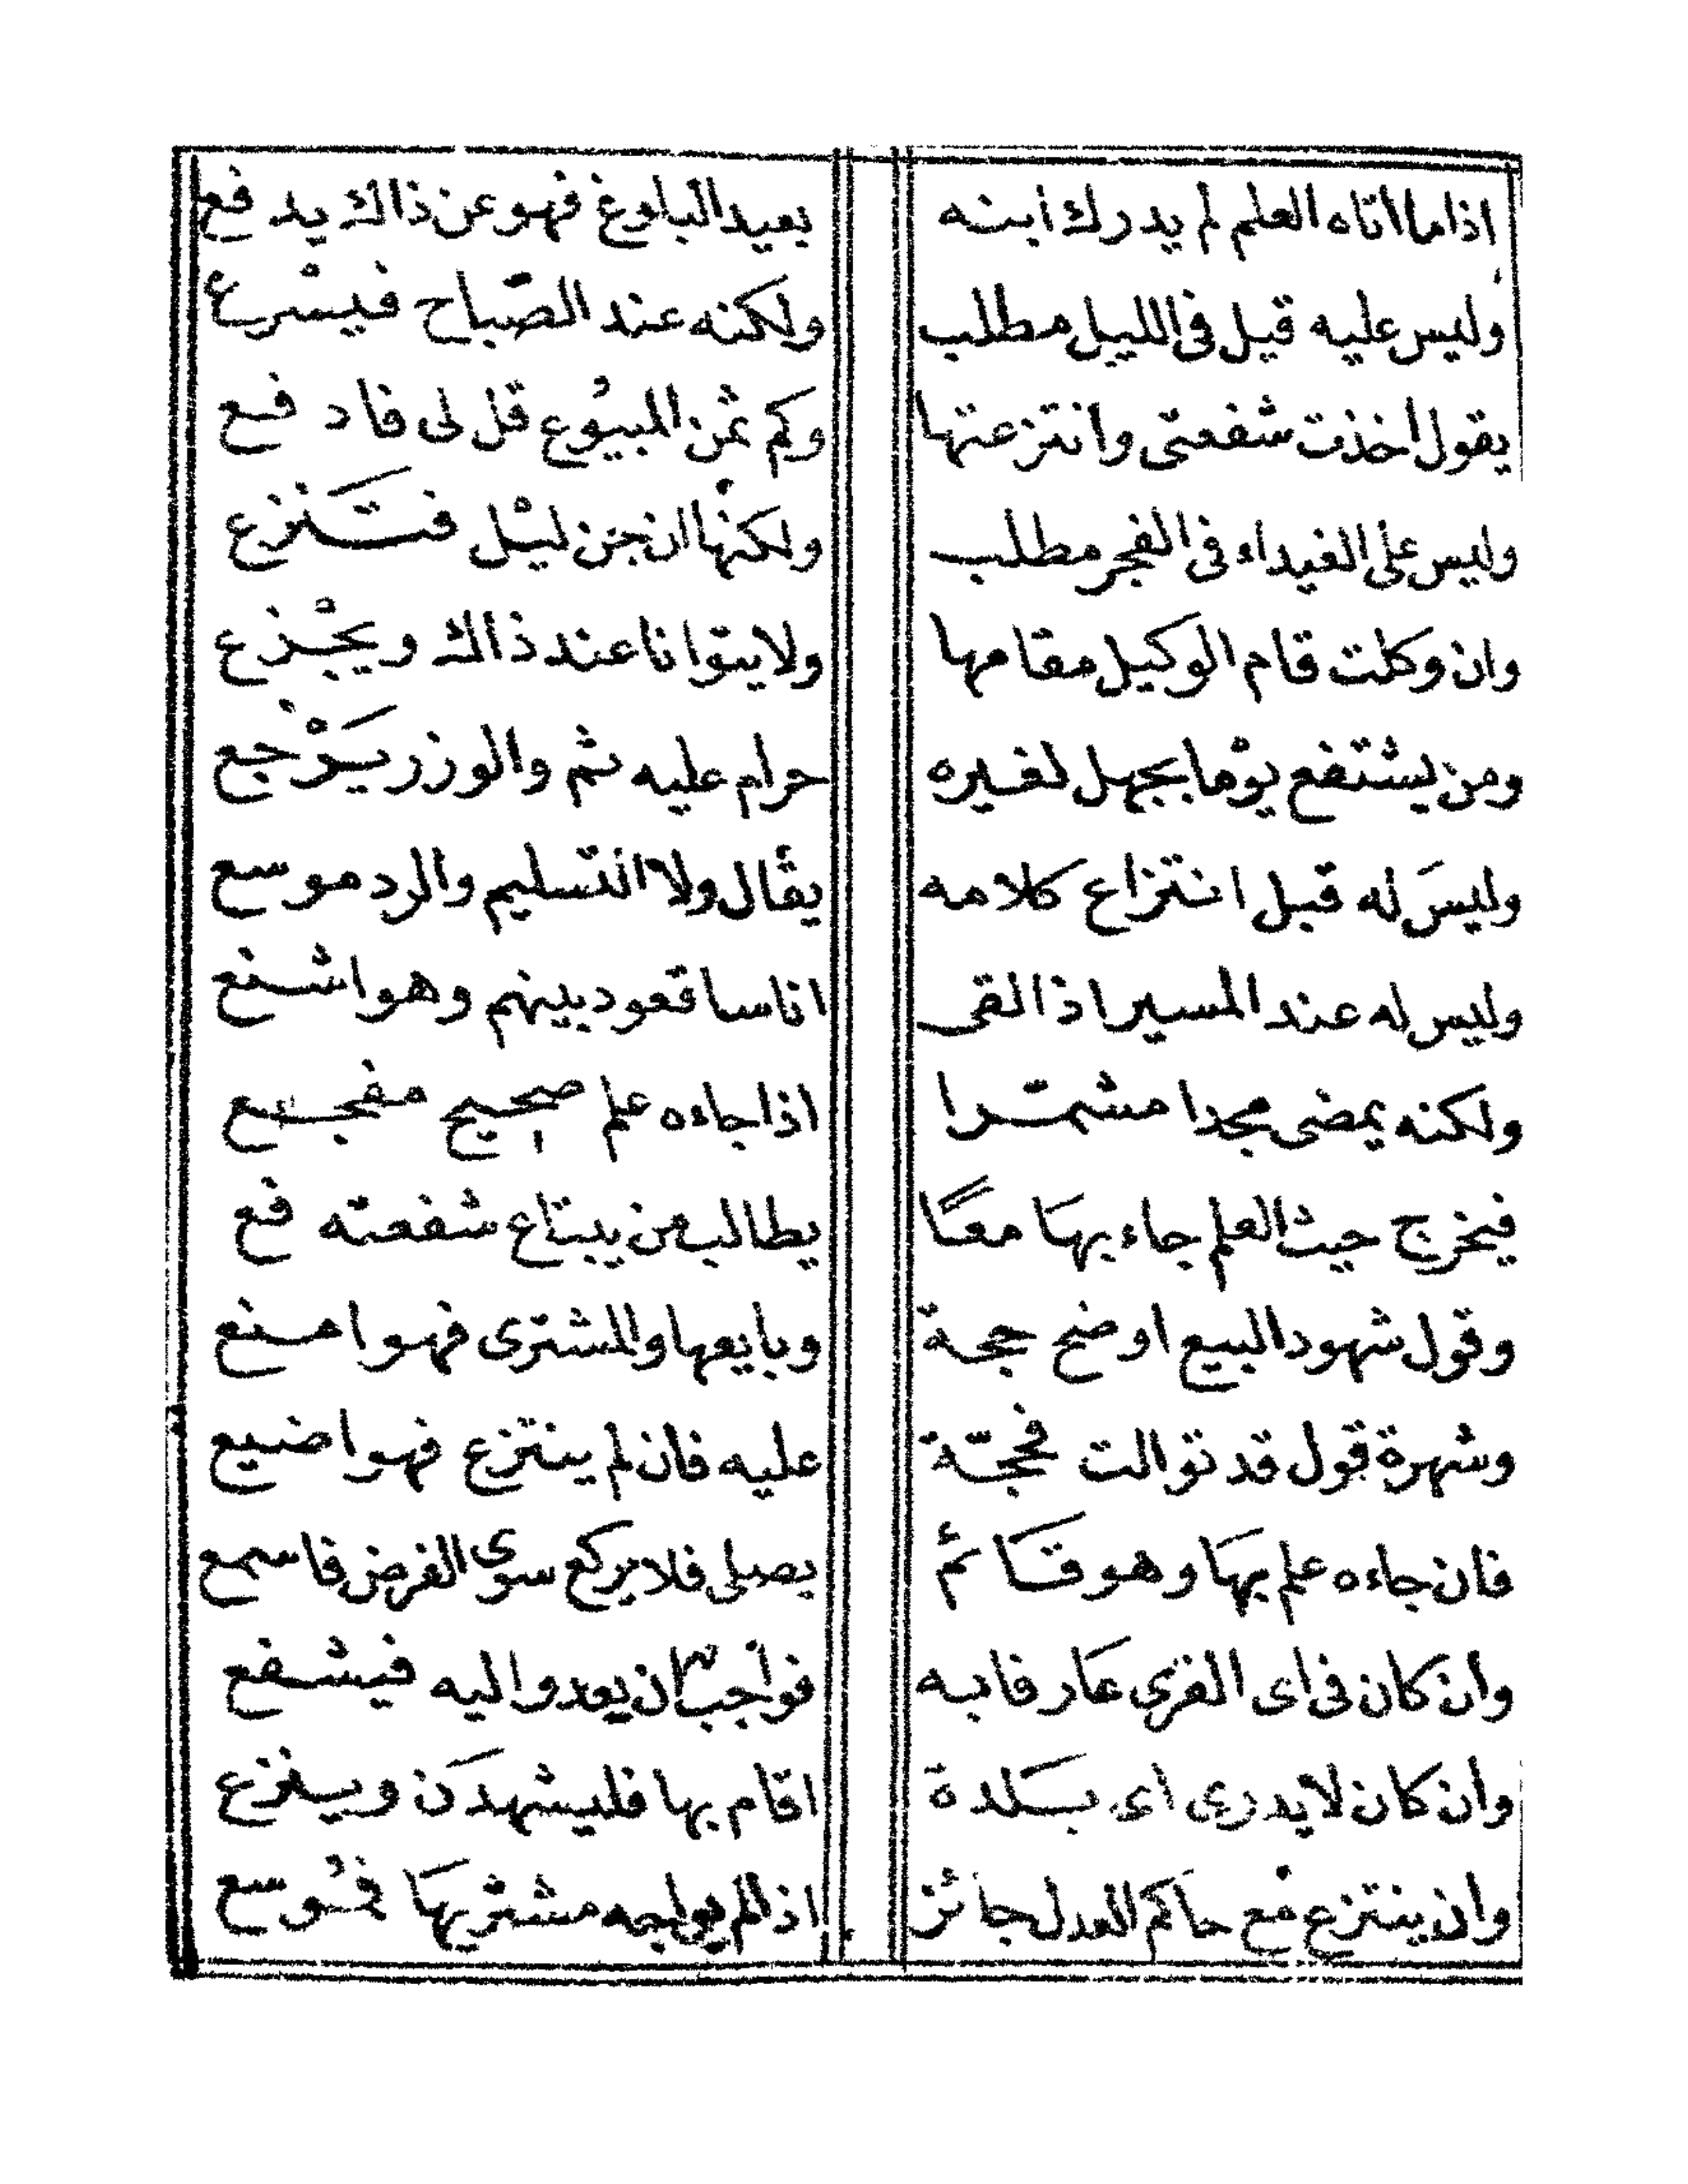 اذا ما اتاه العلم لم يدرك ابنه بعيد البلوغ فهو عن ذاك يدفع
وليس عليه قيل فى الليل مطلب ولكنه عند الصّباح فيسْرع
يقول اخذت شفعتى وانتزعتها وكم ثمن المبيُوع قل لى فادفع
وليس على الغيداء فى الفجر مطلب ولكنها ان جن ليْل فتَنزع
وان وكلت قام الوكيل مقامها ولا يتوانا عند ذاك ويجْزع
ومن يشتفع يوْما بجهل لغيره حرام عليه ثم والوزر يَرْجع
وليسَ له قبل انتزاع كلامه يقال ولا التسليم والرد موسع
وليس له عند المسير اذا القى اناسا قعود بينهم وهو اشنع
ولكنه يمضى مجدا مشمرا اذا جاءه علم صحيح مفجع
فيخرج حيث العلم جاء بهَا معًا يطالب من يبتاع شفعته فع
وقول شهود البيع اوضح حجة وبايعها والمشترى فهو امنع
وشهرة قول قد توالت فحجّة عليه فان لم ينتزع فهو اضيع
فان جاءه علم بهَا وهو قَائم يصلى فلا يركع سوى الفرض فاسمع
وان كان فى اى القرى عَارفا به فواجب ان يعدو اليه فيشفع
وان كان لا يدرى اى بَلدة اقام بها فليشهدَن وينزع
وان ينتزع مع حاكم العدل جائز اذا لم يواجه مشتريهَا فمُوسع